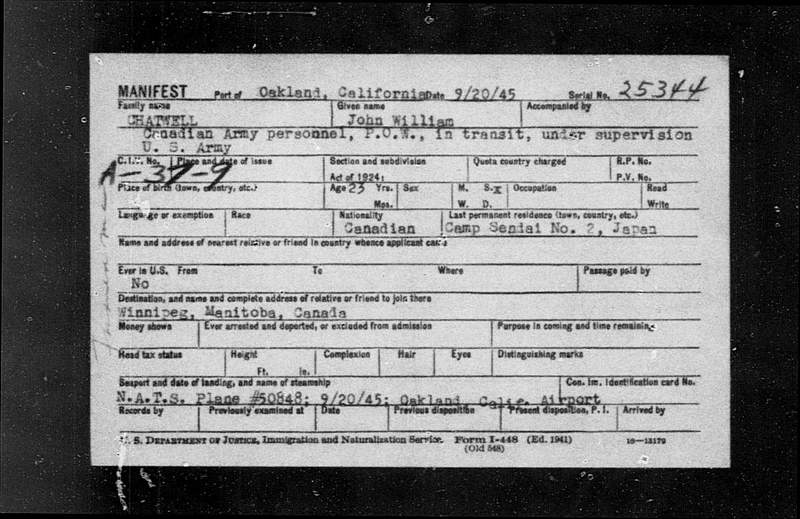 MANIFEST Port of Oakland, California Date 9/20/45 Serial No. 25344
Family name Given name Accompanied by
CHATWELL John William
Canadian Army personnel, P.O.W., in transit, under supervision
U. S. Army
C.I.V. No. Place and date of issue Section and subdivision Quota country charged R.P. No.
A-37-9 Act of 1924: P.V. No.
Place of birth (town, country, etc.) Age 23 Yrs. Sex M. S. x Occupation Read
Mos. W. D. Write
Language or exemption Race Nationality Last permanent residence (town, country, etc.)
Canadian Camp Sendai No. 2, Japan
Name and address of nearest relative or friend in country whence applicant came
Ever in U.S. From To Where Passage paid by
No
Destination, and name and complete address of relative or friend to join there
Winnipeg, Manitoba, Canada
Money shown Ever arrested and deported, or excluded from admission Purpose in coming and time remaining
Head tax status Height Complexion Hair Eyes Distinguishing marks
Ft. in.
Seaport and date of landing, and name of steamship Con. Im. Identification card No.
N.A.T.S. Plane #50848; 9/20/45; Oakland, Calif. Airport
Records by Previously examined at Date Previous disposition Present disposition, P. I. Arrived by
U. S. DEPARTMENT OF JUSTICE, Immigration and Naturalization Service. Form I-448 (Ed. 1941) 16—13179
(Old 548)